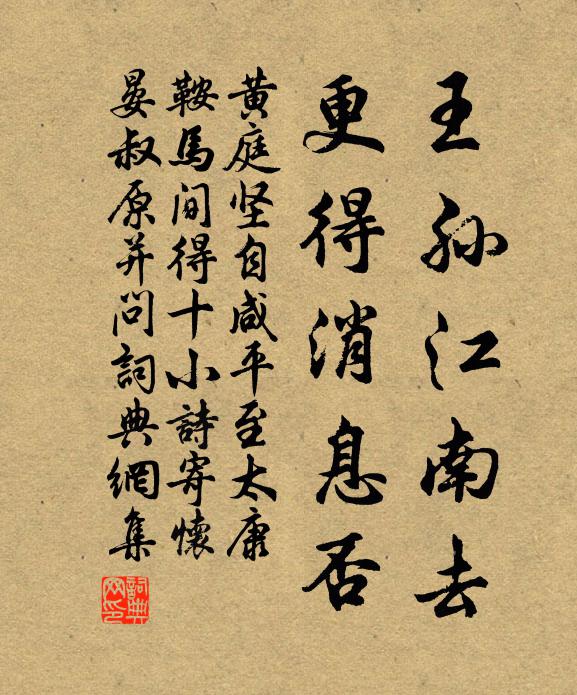 王孙江南去
更得消息否
黄庭坚自咸平至太康
鞍馬間得十小詩寄懷
晏叔原并問詞典網集
詞典
网印